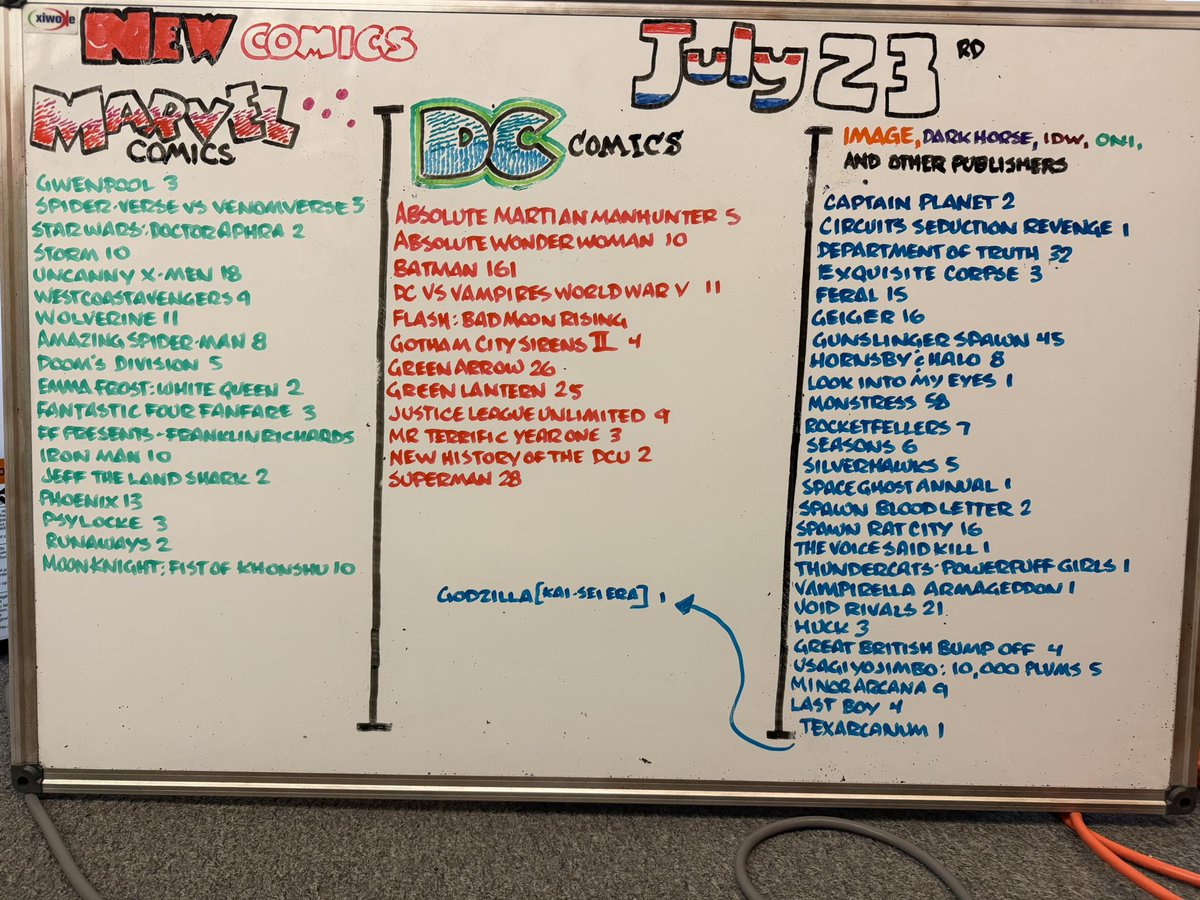 xiwode
NEW COMICS
July 23RD
MARVEL
COMICS
GWENPOOL 3
SPIDER-VERSE VS VENOMVERSE 3
STAR WARS: DOCTOR APHRA 2
STORM 10
UNCANNY X-MEN 18
WEST COAST AVENGERS 9
WOLVERINE 11
AMAZING SPIDER-MAN 8
DOOM'S DIVISION 5
EMMA FROST: WHITE QUEEN 2
FANTASTIC FOUR FANFARE 3
FF PRESENTS - FRANKLIN RICHARDS
IRON MAN 10
JEFF THE LAND SHARK 2
PHOENIX 13
PSYLOCKE 3
RUNAWAYS 2
MOON KNIGHT: FIST OF KHONSHU 10
DC COMICS
ABSOLUTE MARTIAN MANHUNTER 5
ABSOLUTE WONDER WOMAN 10
BATMAN 161
DC VS VAMPIRES WORLD WAR V 11
FLASH: BAD MOON RISING
GOTHAM CITY SIRENS II 4
GREEN ARROW 26
GREEN LANTERN 25
JUSTICE LEAGUE UNLIMITED 9
MR TERRIFIC YEAR ONE 3
NEW HISTORY OF THE DCU 2
SUPERMAN 28
GODZILLA [KAI-SEI ERA] 1
IMAGE, DARK HORSE, IDW, ONI,
AND OTHER PUBLISHERS
CAPTAIN PLANET 2
CIRCUITS SEDUCTION REVENGE 1
DEPARTMENT OF TRUTH 32
EXQUISITE CORPSE 3
FERAL 15
GEIGER 16
GUNSLINGER SPAWN 45
HORNSBY & HALO 8
LOOK INTO MY EYES 1
MONSTRESS 58
ROCKETFELLERS 7
SEASONS 6
SILVERHAWKS 5
SPACE GHOST ANNUAL 1
SPAWN BLOOD LETTER 2
SPAWN RAT CITY 16
THE VOICE SAID KILL 1
THUNDERCATS - POWERPUFF GIRLS 1
VAMPIRELLA ARMAGEDDON 1
VOID RIVALS 21
HUCK 3
GREAT BRITISH BUMP OFF 4
USAGI YOJIMBO: 10,000 PLUMS 5
MINOR ARCANA 9
LAST BOY 4
TEXARCANUM 1